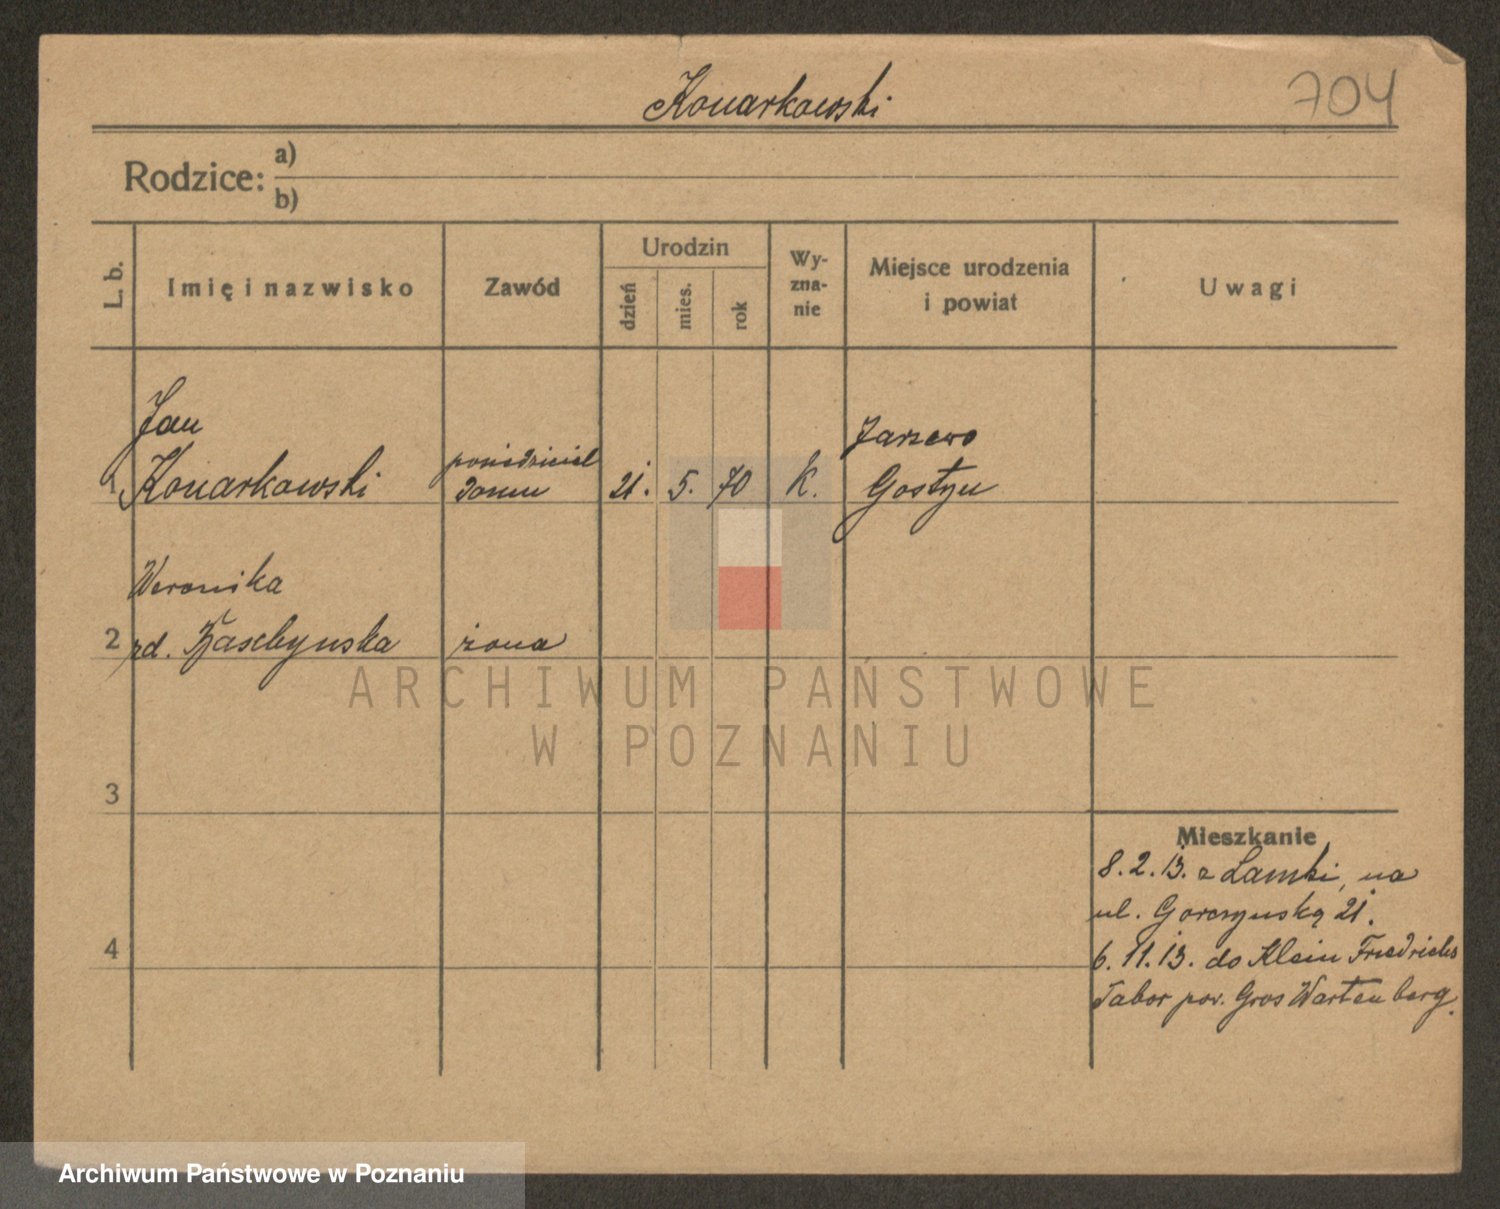 Konarkowski
704
Rodzice: a)
b)
L. b.
Imię i nazwisko
Zawód
Urodzin
dzień
mies.
rok
Wy-
zna-
nie
Miejsce urodzenia
i powiat
Uwagi
Jan
1 Konarkowski
posiedziciel
domu
21. 5. 70 K.
Jarzewo
Gostyn
Weronika
2 rd. żona
3
4
Mieszkanie
8.2.13. z Lamki, na
ul. Gorczynską 21.
6.11.13. do Klein Friedrichs
Tabor pow. Gros Wartenberg.
ARCHIWUM PAŃSTWOWE
W POZNANIU
Archiwum Państwowe w Poznaniu